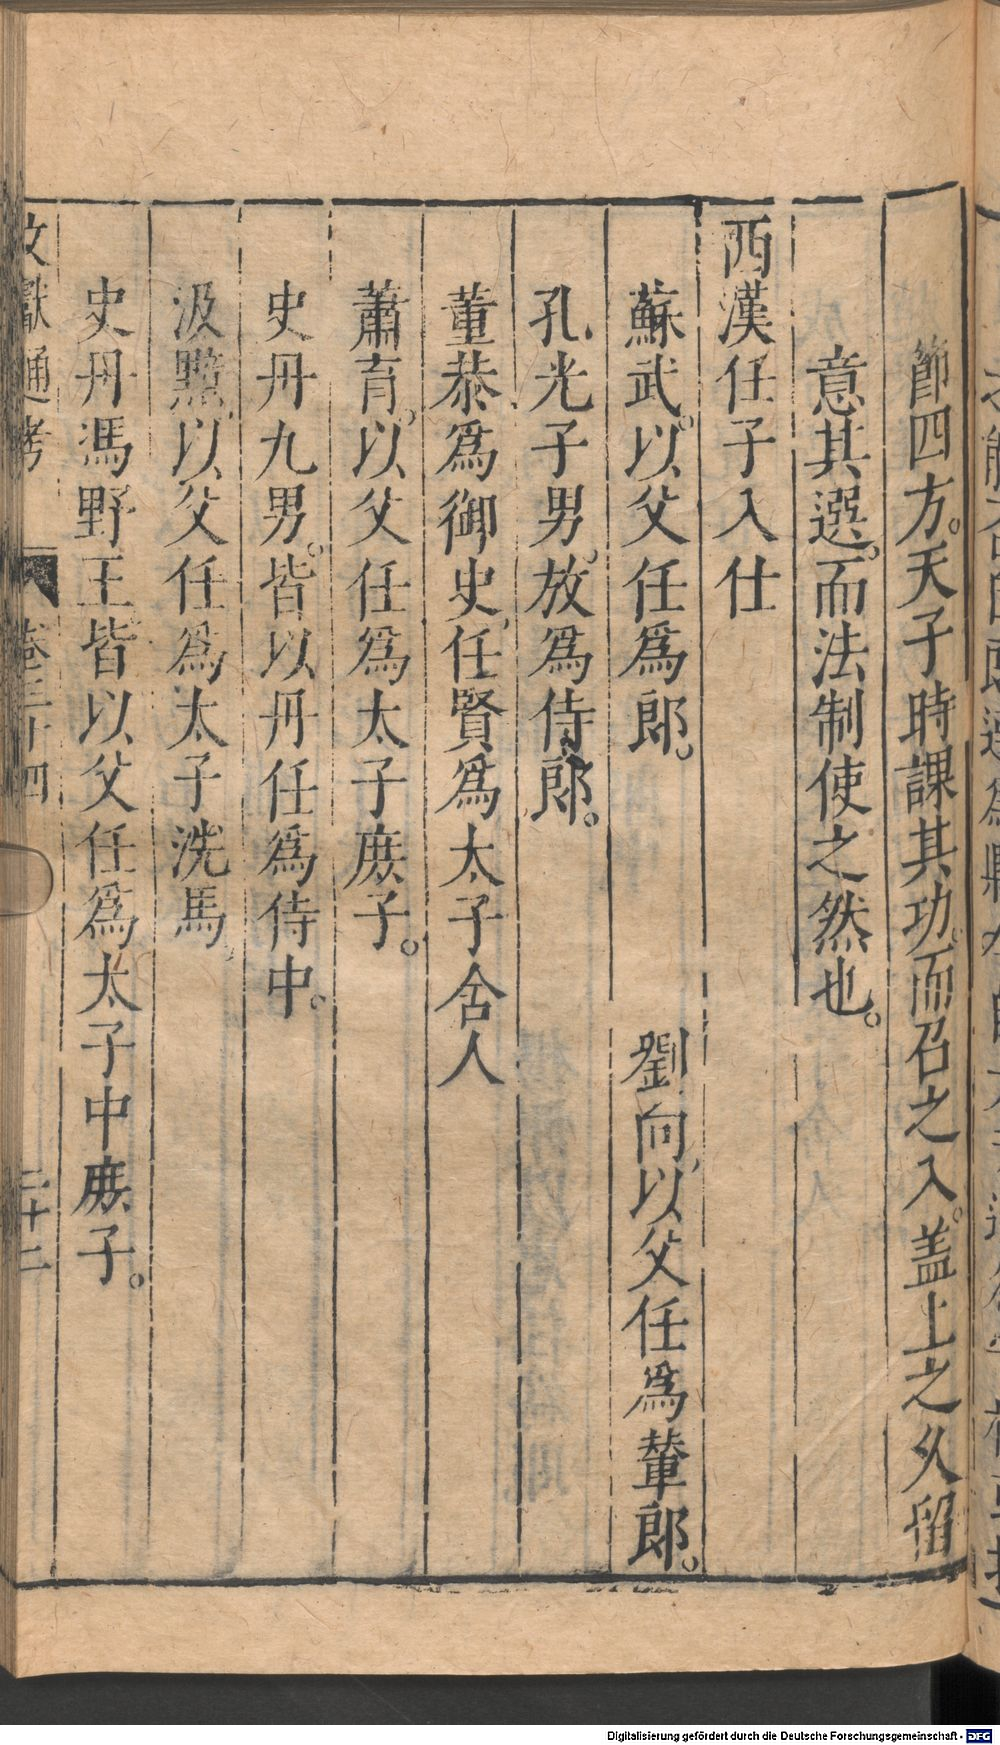 節四方。天子時課其功。而召之入。盖上之久留
意其選。而法制使之然也。
西漢任子入仕
蘇武。以父任爲郎。 劉向，以父任爲輦郎。
孔光子男。放爲侍郎。
董恭爲御史，任賢爲太子舍人
蕭育。以父任爲太子庻子。
史丹九男。皆以丹任爲侍中。
汲黯，以父任爲太子洗馬，
史丹馮野王皆以父任爲太子中庻子。
文獻通考 卷三十四 二十二
Digitalisierung gefördert durch die Deutsche Forschungsgemeinschaft - DFG